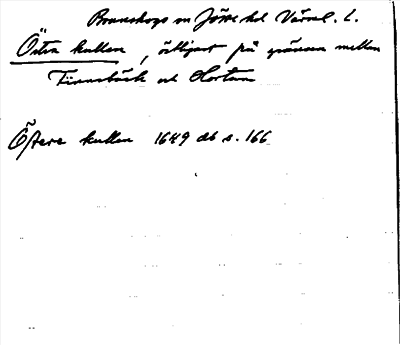 Brunskogs sn Jösse hd Värml. l.
Östra kullen, östligast på gränsen mellan
Finnebäck och
Östere kullen 1649 db s. 166